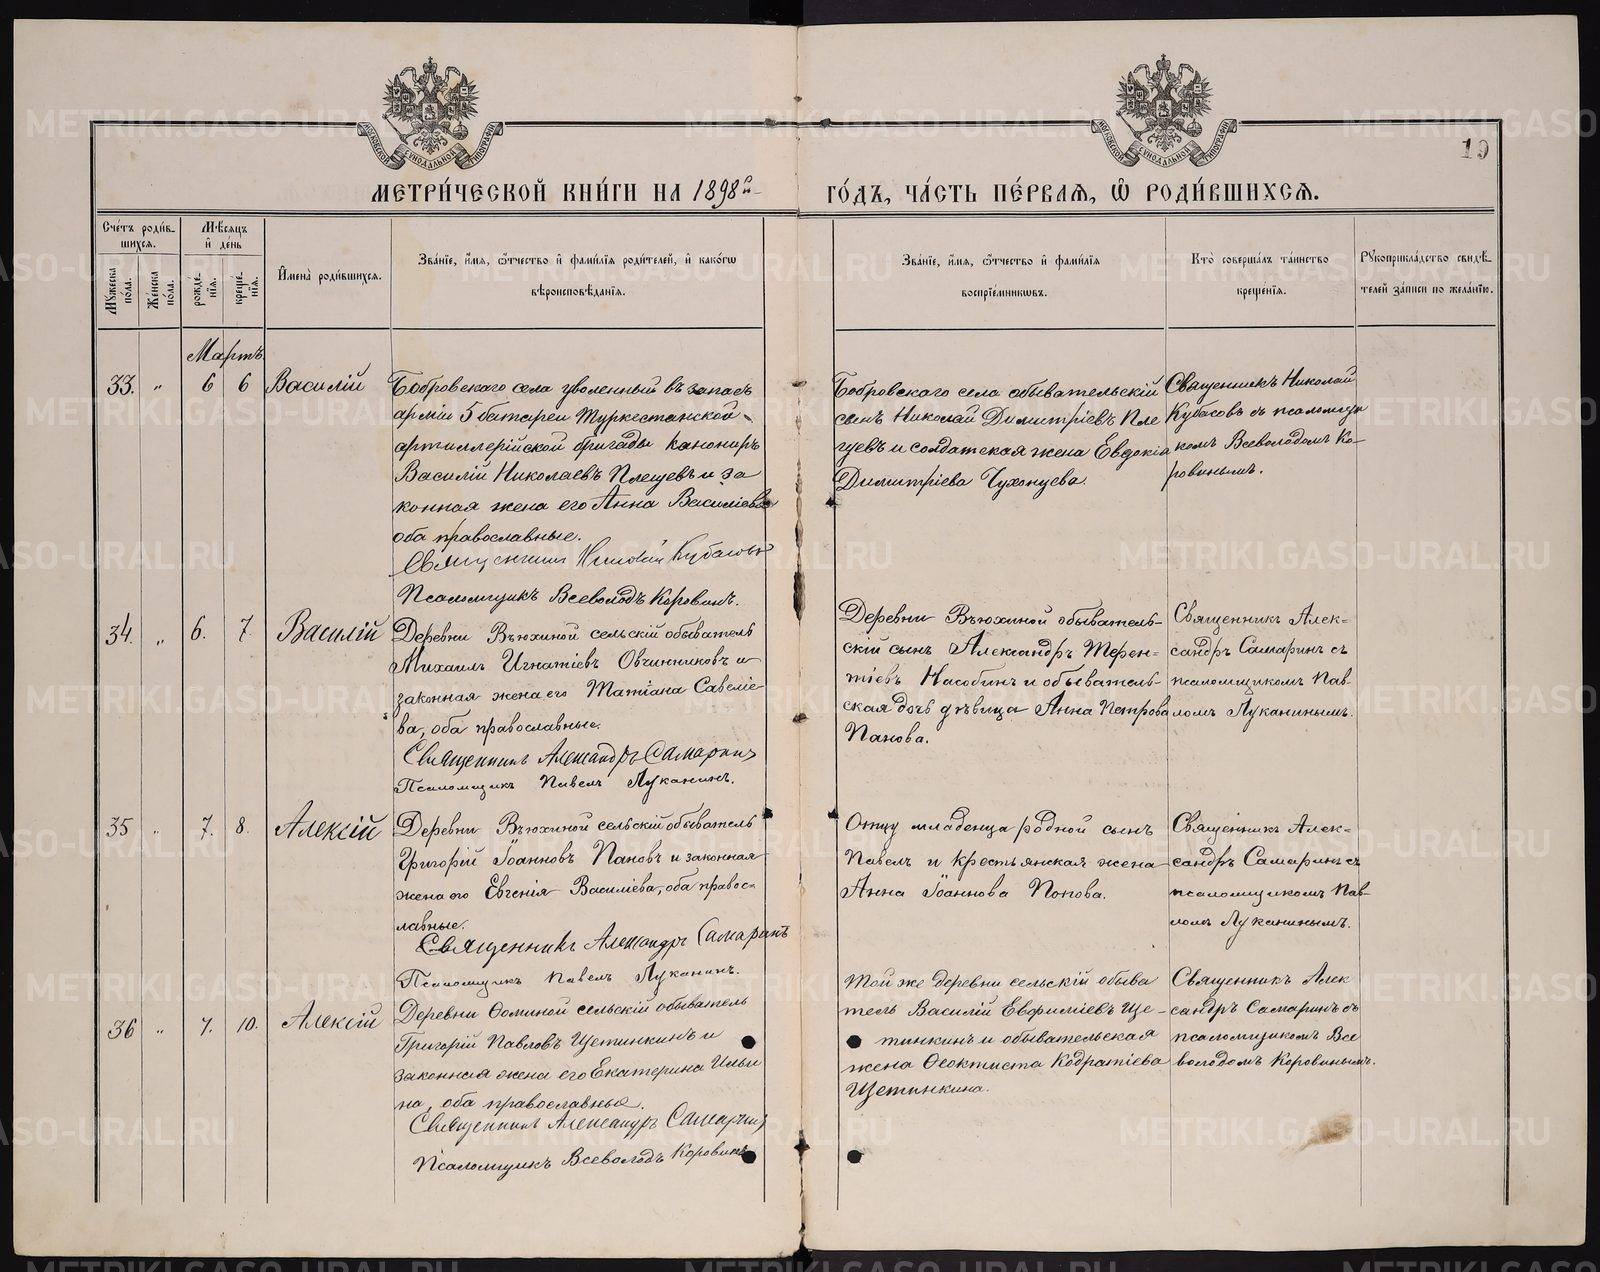 19
МЕТРИ́ЧЕСКОЙ КНИ́ГИ НА 1898й ГО́ДЪ, ЧА́СТЬ ПЕ́РВАѦ, Ѿ РОДИ́ВШИХСѦ.
Сче́тъ роди́в-
шихся.
Мꙋжеска по́ла.
Же́нска по́ла.
Мѣ́сяцъ
и҆ де́нь
рожде́-
нїѧ.
креще́-
нїѧ.
И҆мена̀ роди́вшихся.
Зва́нїе, и҆́мя, ѻ҆́тчество и҆ фами́лїя роди́телей, и҆ како́гѡ
вѣроисповѣ́данїя.
Зва́нїе, и҆́мя, ѻ҆́тчество и҆ фами́лїя
воспрїе́мникѡвъ.
Кто̀ соверша́лъ та́инство
креще́нїя.
Рꙋкоприкла́дство свидѣ́-
телей за́писи по жела́нїю.
Мартъ
33. „ 6 6 Василій
Бобровскаго села уволенный въ запасъ
арміи 5 батареи Туркестанской
артиллерійской бригады канониръ
Василій Николаевъ Плещевъ и за
конная жена его Анна Василіева
оба православные.
Священникъ Николай Кубасовъ
Псаломщикъ Всеволодъ Коровинъ.
Бобровскаго села обывательскій
сынъ Николай Димитріевъ Пле
щевъ и солдатская жена Евдокія
Димитріева Чухонцева.
Священникъ Николай
Кубасовъ съ псаломщи
комъ Всеволодомъ Ко-
ровинымъ.
34. „ 6. 7. Василій
Деревни Вьюхиной сельскій обыватель
Михаилъ Игнатіевъ Овчинниковъ и
законная жена его Татіана Савеліе-
ва, оба православные.
Священникъ Александръ Самаринъ
Псаломщикъ Павелъ Луканинъ.
Деревни Вьюхиной обыватель-
скій сынъ Александръ Терен-
тіевъ Насобинъ и обыватель-
ская дочь дѣвица Анна Петрова
Панова.
Священникъ Алек-
сандръ Самаринъ съ
псаломщикомъ Пав-
ломъ Луканинымъ.
35 „ 7. 8. Алексій
Деревни Вьюхиной сельскій обыватель
Григорій Іоанновъ Пановъ и законная
жена его Евгенія Василіева, оба правос-
лавные.
Священникъ Александръ Самаринъ
Псаломщикъ Павелъ Луканинъ.
Отцу младенца родной сынъ
Павелъ и крестьянская жена
Анна Іоаннова Попова.
Священникъ Алек-
сандръ Самаринъ съ
псаломщикомъ Пав-
ломъ Луканинымъ.
36 „ 7. 10. Алексій
Деревни Ѳоминой сельскій обыватель
Григорій Павловъ Щетинкинъ и
законная жена его Екатерина Ильи
на, оба православные.
Священникъ Александръ Самаринъ
Псаломщикъ Всеволодъ Коровинъ
Той же деревни сельскій обыва
тель Василій Евфиміевъ Ще-
тинкинъ и обывательская
жена Ѳеоктиста Кодратіева
Щетинкина.
Священникъ Алек
сандръ Самаринъ съ
псаломщикомъ Все
володомъ Коровинымъ.
METRIKI.GASO-URAL.RU